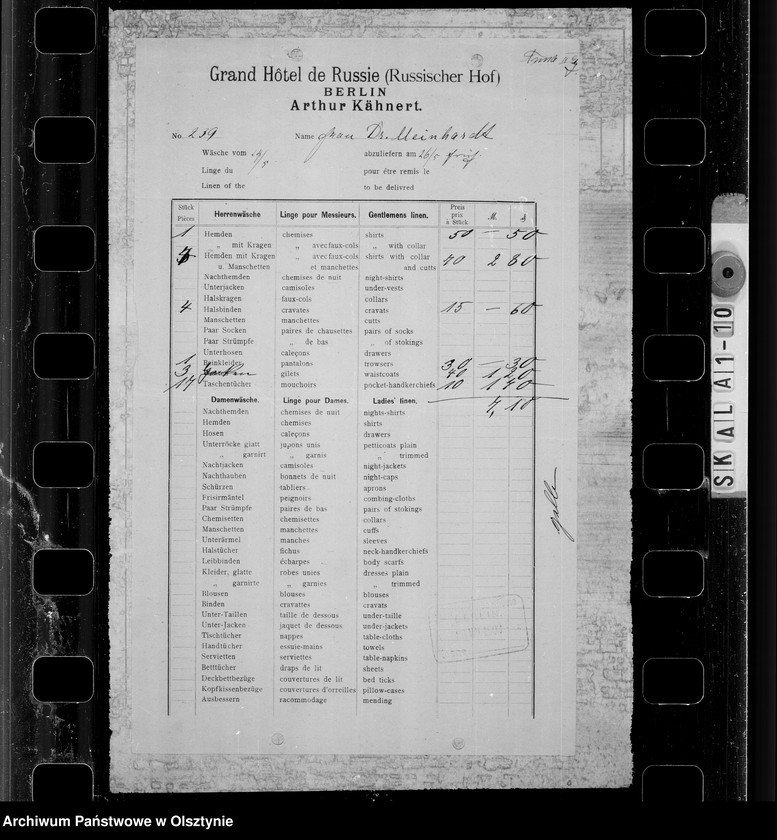 Grand Hôtel de Russie (Russischer Hof)
BERLIN
Arthur Kähnert.
No. 259 Name Frau Dr. Meinhardt
Wäsche vom /5 abzuliefern am 26/5 früh.
Linge du pour être remis le
Linen of the to be delivred
Stück Pièces Herrenwäsche Linge pour Messieurs. Gentlemens linen. Preis prix à Stück M. ₰
1 Hemden chemises shirts 50 — 50
„ mit Kragen „ avec faux-cols „ with collar
Hemden mit Kragen „ avec faux-cols shirts with collar 40 2 80
u. Manschetten et manchettes and cutts
Nachthemden chemises de nuit night-shirts
Unterjacken camisoles under-vests
Halskragen faux-cols collars
4 Halsbinden cravates cravats 15 — 60
Manschetten manchettes cutts
Paar Socken paires de chausettes pairs of socks
Paar Strümpfe „ de bas „ of stokings
Unterhosen caleçons drawers
1 Beinkleider pantalons trowsers 30 — 30
3 gilets waistcoats 40 1 20
14 Taschentücher mouchoirs pocket-handkerchiefs 10 1 40
Damenwäsche. Linge pour Dames. Ladies' linen.
Nachthemden chemises de nuit nights-shirts
Hemden chemises shirts
Hosen caleçons drawers
Unterröcke glatt jupons unis petticoats plain
„ garnirt „ garnis „ trimmed
Nachtjacken camisoles night-jackets
Nachthauben bonnets de nuit night-caps
Schürzen tabliers aprons
Frisirmäntel peignoirs combing-cloths
Paar Strümpfe paires de bas pairs of stokings
Chemisetten chemisettes collars
Manschetten manchettes cuffs
Unterärmel manches sleeves
Halstücher fichus neck-handkerchiefs
Leibbinden écharpes body scarfs
Kleider, glatte robes unies dresses plain
„ garnirte „ garnies „ trimmed
Blousen blouses blouses
Binden cravattes cravats
Unter-Taillen taille de dessous under-taille
Unter-Jacken jaquet de dessous under-jackets
Tischtücher nappes table-cloths
Handtücher essuie-mains towels
Servietten serviettes table-napkins
Betttücher draps de lit sheets
Deckbettbezüge couvertures de lit bed ticks
Kopfkissenbezüge couvertures d'orreilles pillow-cases
Ausbessern racommodage mending
SKALA 1-10
Archiwum Państwowe w Olsztynie